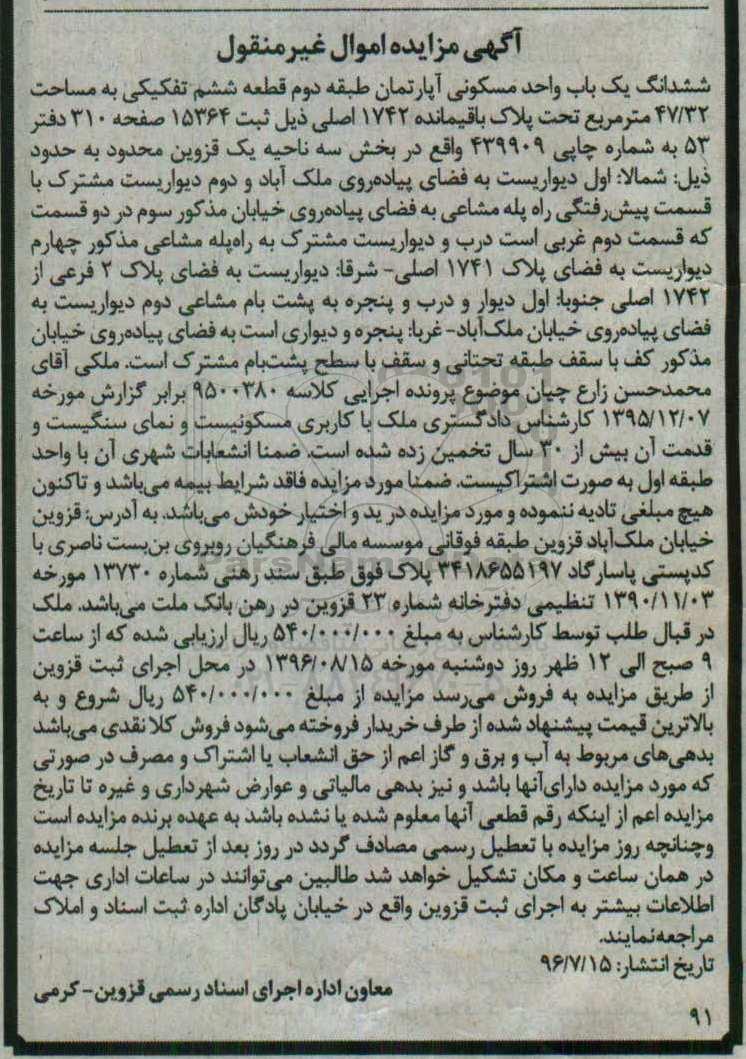 آگهی مزایده اموال غیرمنقول
ششدانگ یک باب واحد مسکونی آپارتمان طبقه دوم قطعه ششم تفکیکی به مساحت
۴۷/۳۲ مترمربع تحت پلاک باقیمانده ۱۷۴۲ اصلی ذیل ثبت ۱۵۳۶۴ صفحه ۳۱۰ دفتر
۵۳ به شماره چاپی ۴۳۹۹۰۹ واقع در بخش سه ناحیه یک قزوین محدود به حدود
ذیل: شمالا: اول دیواریست به فضای پیاده‌روی ملک آباد و دوم دیواریست مشترک با
قسمت پیش‌رفتگی راه پله مشاعی به فضای پیاده‌روی خیابان مذکور سوم در دو قسمت
که قسمت دوم غربی است درب و دیواریست مشترک به راه‌پله مشاعی مذکور چهارم
دیواریست به فضای پلاک ۱۷۴۱ اصلی- شرقا: دیواریست به فضای پلاک ۲ فرعی از
۱۷۴۲ اصلی جنوبا: اول دیوار و درب و پنجره به پشت بام مشاعی دوم دیواریست به
فضای پیاده‌روی خیابان ملک‌آباد- غربا: پنجره و دیواری است به فضای پیاده‌روی خیابان
مذکور کف با سقف طبقه تحتانی و سقف با سطح پشت‌بام مشترک است. ملکی آقای
محمدحسن زارع چیان موضوع پرونده اجرایی کلاسه ۹۵۰۰۳۸۰ برابر گزارش مورخه
۱۳۹۵/۱۲/۰۷ کارشناس دادگستری ملک با کاربری مسکونیست و نمای سنگیست و
قدمت آن بیش از ۳۰ سال تخمین زده شده است. ضمنا انشعابات شهری آن با واحد
طبقه اول به صورت اشتراکیست. ضمنا مورد مزایده فاقد شرایط بیمه می‌باشد و تاکنون
هیچ مبلغی تادیه ننموده و مورد مزایده در ید و اختیار خودش می‌باشد. به آدرس: قزوین
خیابان ملک‌آباد قزوین طبقه فوقانی موسسه مالی فرهنگیان روبروی بن‌بست ناصری با
کدپستی پاسارگاد ۳۴۱۸۶۵۵۱۹۷ پلاک فوق طبق سند رهنی شماره ۱۳۷۳۰ مورخه
۱۳۹۰/۱۱/۰۳ تنظیمی دفترخانه شماره ۲۳ قزوین در رهن بانک ملت می‌باشد. ملک
در قبال طلب توسط کارشناس به مبلغ ۵۴۰/۰۰۰/۰۰۰ ریال ارزیابی شده که از ساعت
۹ صبح الی ۱۲ ظهر روز دوشنبه مورخه ۱۳۹۶/۰۸/۱۵ در محل اجرای ثبت قزوین
از طریق مزایده به فروش می‌رسد مزایده از مبلغ ۵۴۰/۰۰۰/۰۰۰ ریال شروع و به
بالاترین قیمت پیشنهاد شده از طرف خریدار فروخته می‌شود فروش کلا نقدی می‌باشد
بدهی‌های مربوط به آب و برق و گاز اعم از حق انشعاب یا اشتراک و مصرف در صورتی
که مورد مزایده دارای‌آنها باشد و نیز بدهی مالیاتی و عوارض شهرداری و غیره تا تاریخ
مزایده اعم از اینکه رقم قطعی آنها معلوم شده یا نشده باشد به عهده برنده مزایده است
وچنانچه روز مزایده با تعطیل رسمی مصادف گردد در روز بعد از تعطیل جلسه مزایده
در همان ساعت و مکان تشکیل خواهد شد طالبین می‌توانند در ساعات اداری جهت
اطلاعات بیشتر به اجرای ثبت قزوین واقع در خیابان پادگان اداره ثبت اسناد و املاک
مراجعه‌نمایند.
تاریخ انتشار: ۹۶/۷/۱۵
معاون اداره اجرای اسناد رسمی قزوین- کرمی
۹۱